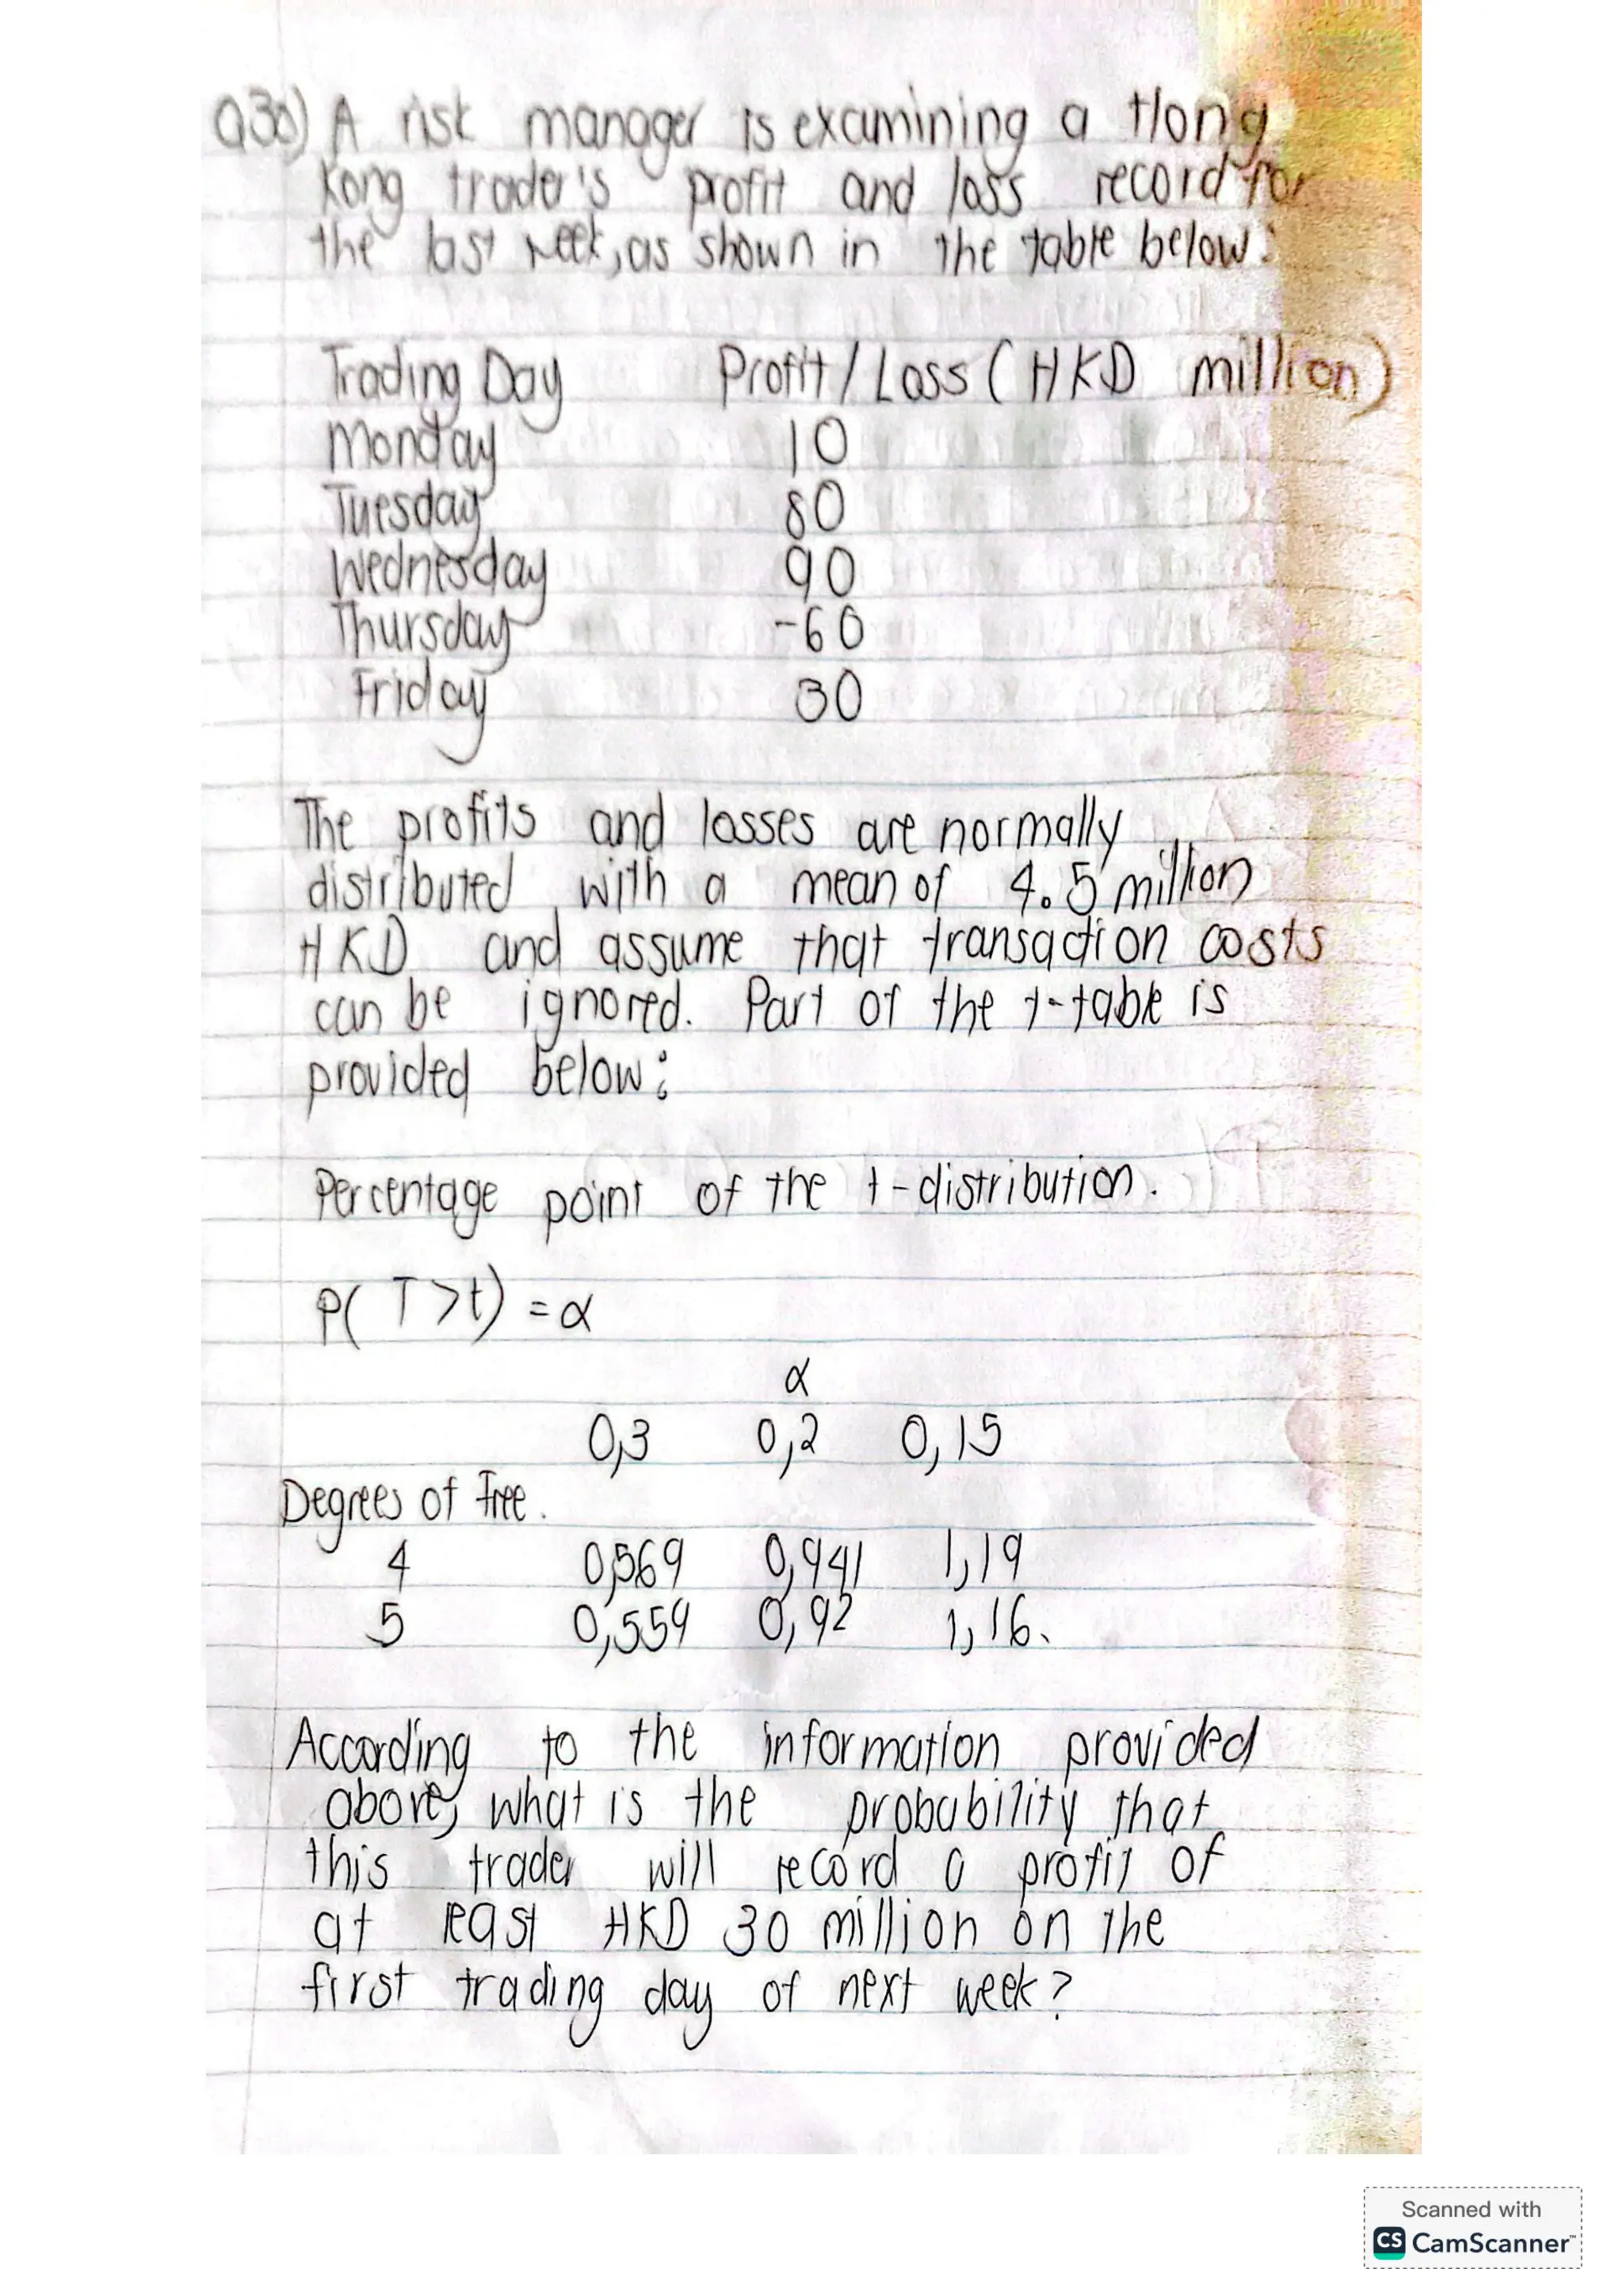 Q30) A risk manager is examining a Hong
Kong trader's profit and loss record for
the last week, as shown in the table below:
Trading Day Profit / Loss ( HKD million)
Monday 10
Tuesday 80
Wednesday 90
Thursday -60
Friday 30
The profits and losses are normally
distributed with a mean of 4.5 million
HKD and assume that transaction costs
can be ignored. Part of the t-table is
provided below:
Percentage point of the t-distribution.
P( T>t) = α
α
0,3 0,2 0,15
Degrees of Free.
4 0,569 0,941 1,19
5 0,559 0,92 1,16.
According to the information provided
above, what is the probability that
this trader will record a profit of
at least HKD 30 million on the
first trading day of next week?
Scanned with
CS CamScanner™